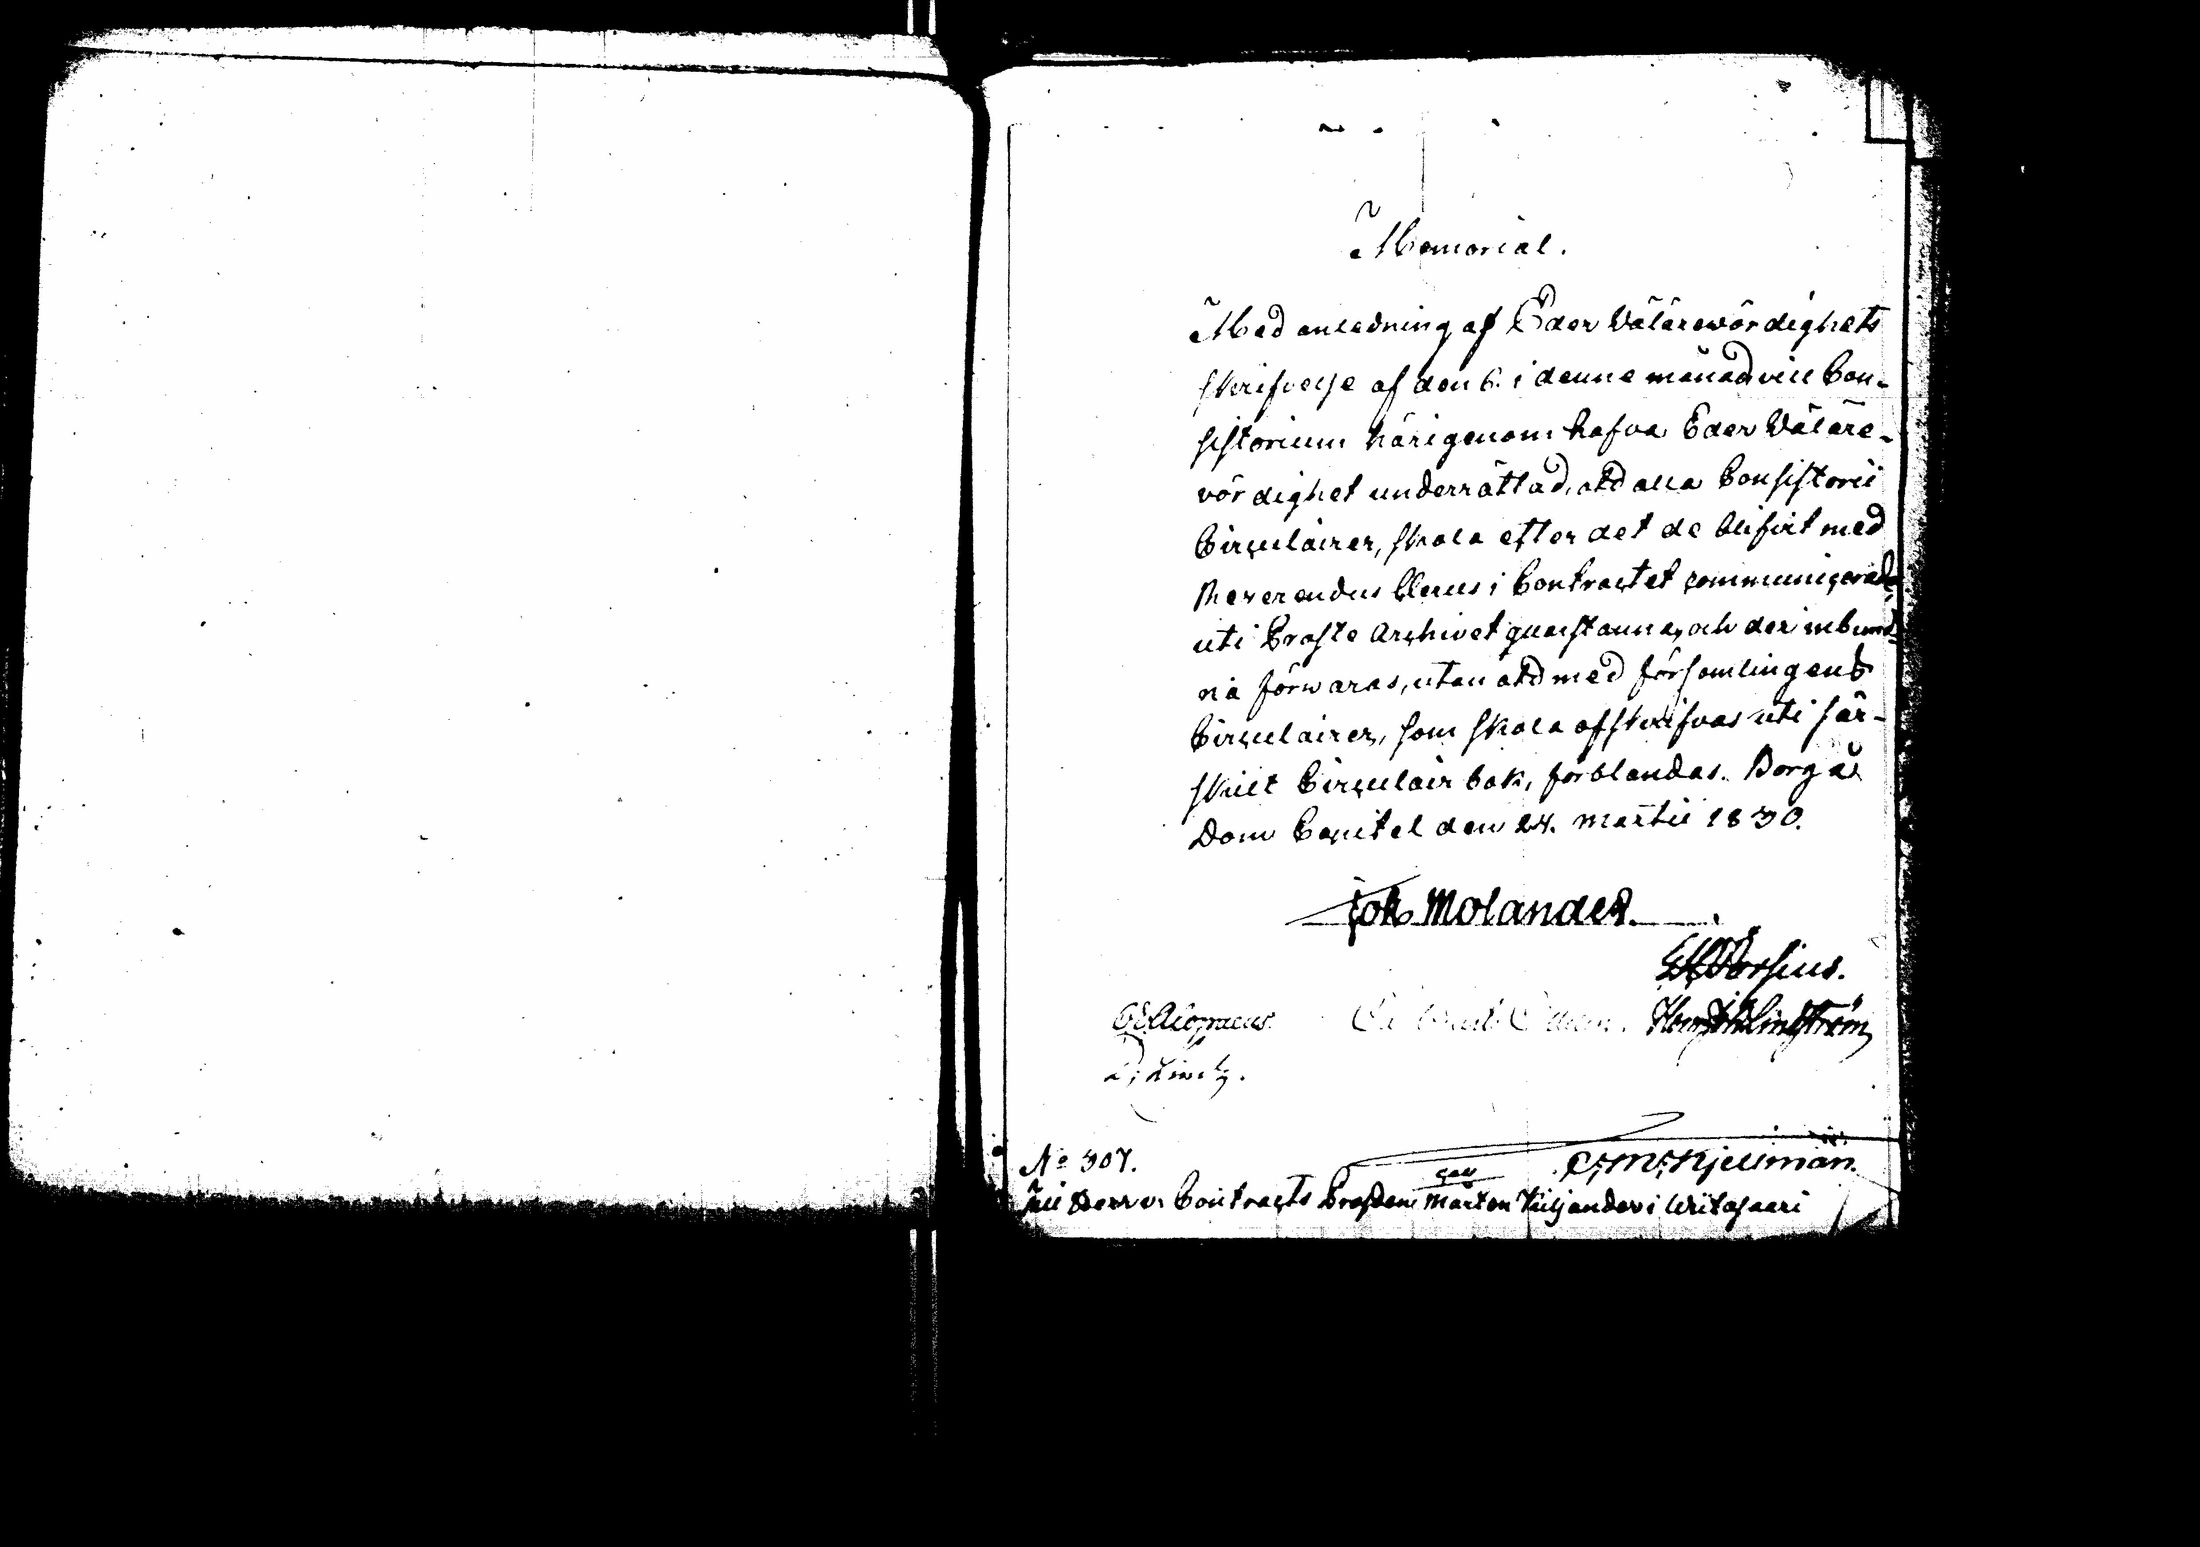 Memorial.
Med anledning af Eder Välärewördighets
skrifvelse af den 6. i denne månad vill Con-
sistorium härigenom hafva Eder Välära-
vördighet underrättad, atd alla Consistorii
Circulairer, skola efter det de blifvit med
Reverendus Clerus i Contractet communicerade,
uti Proste Archivet qvarstanna, och der inbund-
na förwaras, utan atd med församlingens
Circulairer, som skola afskrifvas uti sär-
skilt Circulair bok, förblandas. Borgå
Dom Capitel den 24. Martii 1830.
Joh Molander.
Borsius.
C. E. Alopaeus.
No 307.
C. M. Kjellman.
Till Herr v. Contracts Prosten Mårten Kiljander i Witasaari